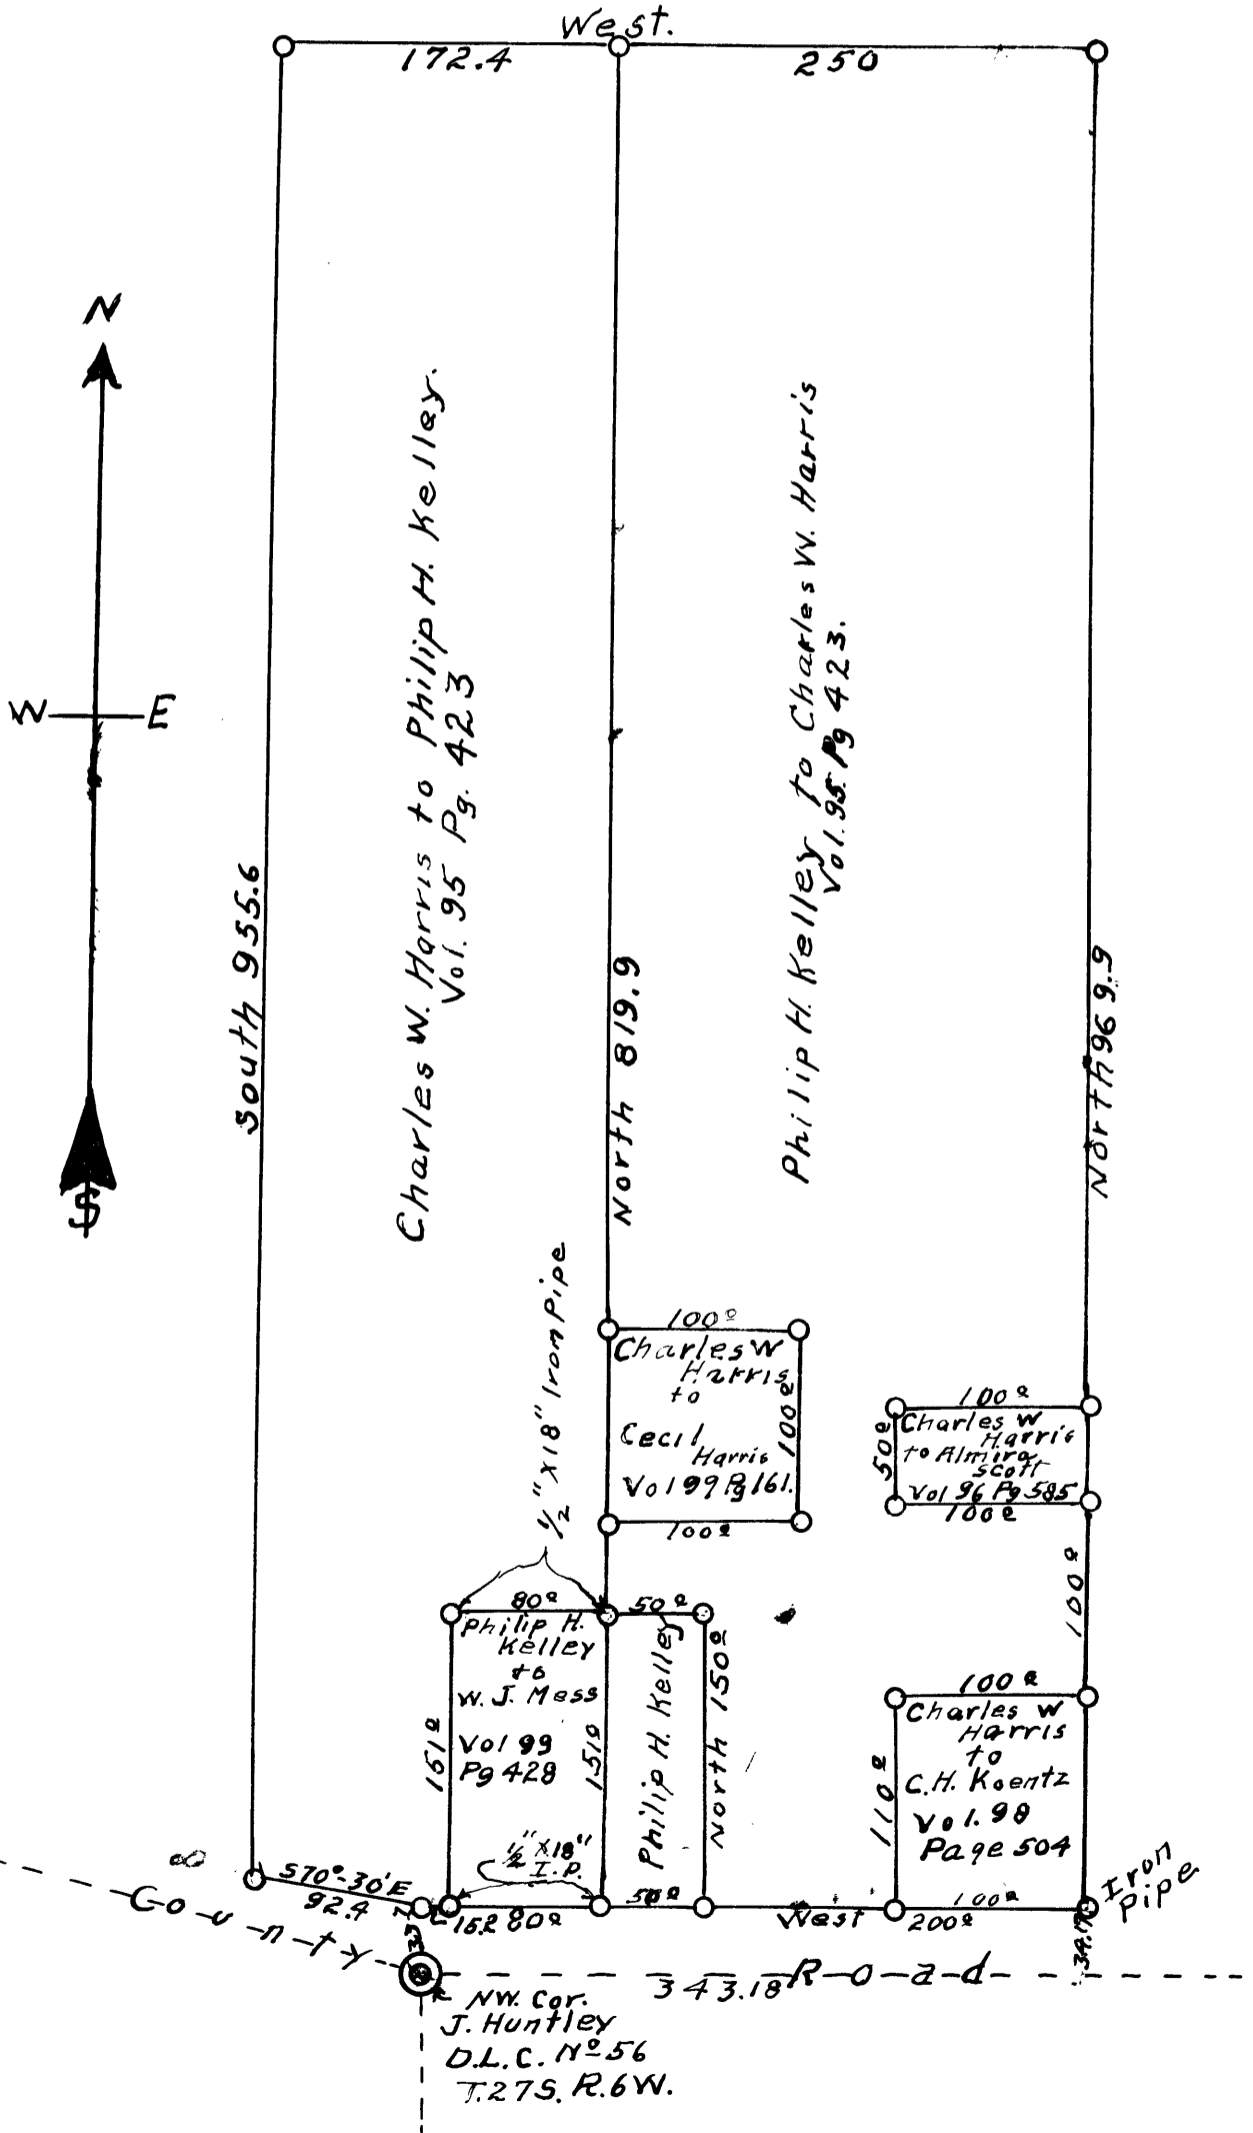 West.
172.4
250
N
W
E
S
South 955.6
Charles W. Harris to Philip H. Kelley.
Vol. 95 Pg. 423
North 819.9
Philip H. Kelley to Charles W. Harris
Vol. 95 Pg 423.
North 969.9
½" X 18" Iron Pipe
100º
Charles W
Harris
to
Cecil
Harris
Vol 99 Pg 161.
100º
100º
100º
50º
Charles W
Harris
to Almira
Scott
Vol 96 Pg 585
100º
100º
80º
Philip H.
Kelley
to
W. J. Mess
Vol 99
Pg 428
151º
151º
½" X 18"
I.P.
50º
Philip H. Kelley
North 150º
50º
100º
Charles W
Harris
to
C.H. Koentz
Vol. 98
Page 504
110º
100º
Iron
Pipe
S70º-30'E
92.4
15.2
80º
West
200º
34.17
County Road
343.18
NW. Cor.
J. Huntley
D.L.C. Nº 56
T.27S. R.6W.